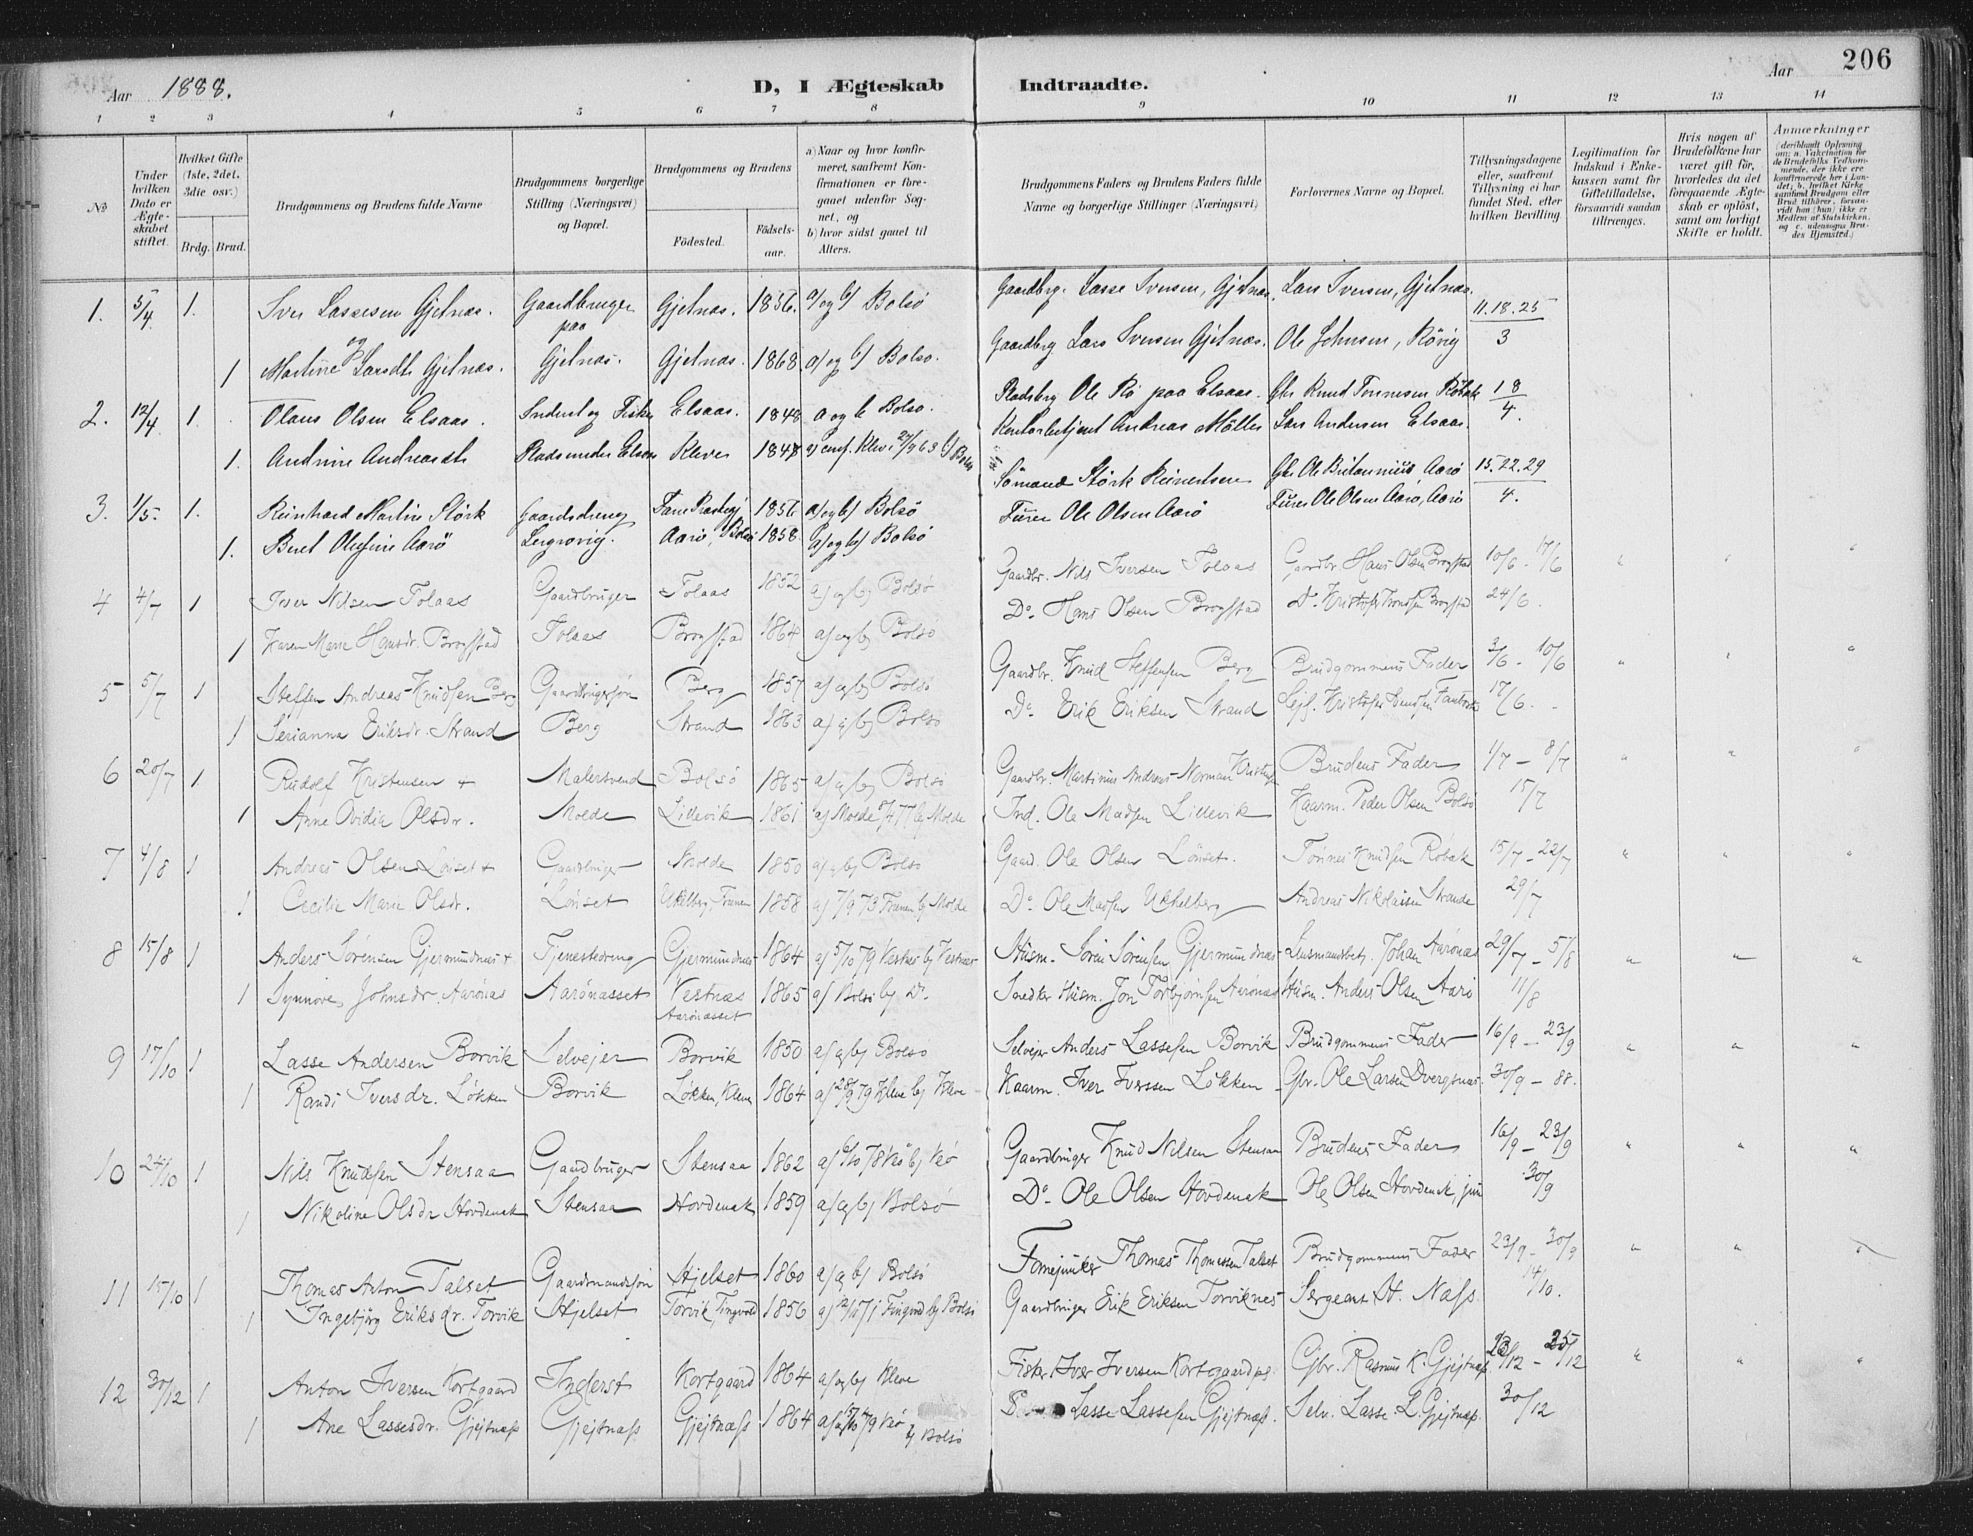 206
Aar 1888. D, I Ægteskab Indtraadte. Aar
1 2 3 4 5 6 7 8 9 10 11 12 13 14
No
Under hvilken Dato er Ægteskabet stiftet.
Hvilket Gifte (1ste, 2det, 3die osv.)
Brdg. Brud.
Brudgommens og Brudens fulde Navne
Brudgommens borgerlige Stilling (Næringsvei) og Bopæl.
Brudgommens og Brudens
Fødested. Fødselsaar.
a) Naar og hvor konfirmeret, saafremt Konfirmationen er foregaaet udenfor Sognet, og
b) hvor sidst gaaet til Alters.
Brudgommens Faders og Brudens Faders fulde Navne og borgerlige Stillinger (Næringsvei)
Forlovernes Navne og Bopæl.
Tillysningsdagene eller, saafremt Tillysning ei har fundet Sted, efter hvilken Bevilling
Legitimation for Indskud i Enkekassen samt for Giftetilladelse, forsaavidt saadan tiltrænges.
Hvis nogen af Brudefolkene har været gift før, hvorledes da det foregaaende Ægteskab er opløst, samt om lovligt Skifte er holdt.
Anmærkninger (deriblandt Oplysning om: a. Vakcination for de Brudefolks Vedkommende, der ikke ere konfirmerede her i Landet; b. hvilket Kirkesamfund Brudgom eller Brud tilhører, forsaavidt han (hun) ikke er Medlem af Statskirken, og c. udensogns Brudes Hjemsted.)
1. 5/4 1. Iver Lassesen Gjelnæs. Gaardbruger paa Gjelnæs. 1856. a/ og b/ Bolsø Gaardbrg. Lasse Iversen, Gjelnæs. Lars Iversen, Gjelnæs. 11. 18. 25
og
1 Martine Larsdtr Gjelnæs. Gjelnæs. Gjelnæs. 1868. a/ og b/ Bolsø. Gaardbrg Lars Iversen Gjelnæs. Ole Johnsen, Rövig 3
2. 12/4 1. Olaus Olsen Elsaas. Inderst og Fisker Elsaas. 1848 a og b Bolsø. Pladsbrg Ole Rö paa Elsaas. Gbr Knud Tønnesen Röbæk 1 8
1. Andrine Andreasdtr Plads under Elsaas Kleve 1848 Kontorbetjent Andreas Möller Lars Andersen Elsaas. 4.
3. 1/5. 1. Reinhard Martin Störk Gaardsdreng 1856 a/ og b/ Bolsø Sömand Störk Reinertsen Gbr Ole Britannius Aarö 15. 22. 29
1. Beret Olufine Aarö Aarö, Bolsö 1858. a/ og b/ Bolsø Furer Ole Olsen Aarö Furer Ole Olsen Aarö, Aarö 4.
4 4/7 1 Iver Nilsen Tolaas Gaardbruger Tolaas 1852 a/ og b/ Bolsö Gaardbr. Nils Iversen Tolaas Gaardbr Hans Olsen Brogstad 10/6. 17/6 " " "
1 Karen Marie Hansdr. Brogstad Tolaas Brogstad 1864 a/ og b/ Bolsö Do. Hans Olsen Brogstad 24/6.
5 5/7 1 Steffen Andreas Knudsen Berg Gaardbrugersøn Berg 1857 a/ og b/ Bolsö Gaardbr. Knud Steffensen Berg Brudgommens Fader 3/6 - 10/6 " " "
1 Serianna Eriksdr. Strand Berg Strand 1863 a/ og b/ Bolsö Do. Erik Eriksen Strand 17/6.
6 20/7 1. Rudolf Kristensen + Malersvend Bolsö 1865 a/ og b/ Bolsö Gaardbr. Martinius Andreas Norman Kristensen Brudens Fader 1/7 - 8/7 " " "
1 Anne Ovidia Olsdr. Molde Lillevik 1861 Molde Ind. Ole Madsen Lillevik Kaarm. Peder Olsen Bolsö 15/7
7 4/8 1 Andreas Olsen Lønset + Gaardbruger Molde 1850 a/ og b/ Bolsö Gaard. Ole Olsen Lönset. Tönnes Knudsen Röbæk 15/7 - 22/7 " " "
1 Cecilie Marie Olsdr. Lönset 1858 a/ 7/9 73 Frænen b/ Molde Do. Ole Madsen Uchelberg Andreas Nikolaisen Strande 29/7
8 15/8 1 Anders Sørensen Gjermundnæs + Tjenestedreng Gjermundnæs 1864 a/ 5/10 79 Vestnæs b/ Vestnæs Husm. Søren Sørensen Gjermundnæs Lensmandsbetj. Johan Aarönæs 29/7 - 5/8 " " "
1 Synnøve Johnsdr. Aarönæs Aarönæsset Vestnæs Aarönæsset 1865 a/ Bolsö b/ Do. Smed & Husm. Jon Torbjørnsen Aarönæs Husm. Anders Olsen Aarö 11/8
9 17/10 1 Lasse Andersen Borvik Selvejer Borvik 1850 a/ og b/ Bolsö Selvejer Anders Lassesen Borvik Brudgommens Fader 16/9 - 23/9 " " "
1 Randi Iversdr. Løkken Borvik Løkken, Kleve 1864 a/ 28/9 79 Kleve b/ Kleve Kaarm. Iver Iverssen Løkken Gbr. Ole Larsen Dvergsnæs 30/9 - 88.
10 24/10 1 Nils Knudsen Stensaa Gaardbruger Stensaa 1862 Gaardbruger Knud Nilsen Stensaa Brudens Fader 16/9 - 23/9 " " "
1 Nikoline Olsdr Hovdenak Stensaa Hovdenak 1859 a/ og b/ Bolsö Do. Ole Olsen Hovdenak Ole Olsen Hovdenak, jun 30/9
11 15/10 1 Thomas Anton Talset Gaardmandssøn Hjelset 1860 a/ og b/ Bolsö Fanejunker Thomas Thomassen Talset Brudgommens Fader 23/9 - 30/9 " " "
1 Ingebjørg Eriksdr. Torvik Hjelset Torvik, Tingvold 1856 Tingvold b/ Bolsö Gaardbruger Erik Eriksen Torviknes Sergeant H. Næss. 14/10.
12 30/12 1 Anton Iversen Kortgaard Inderst Kortgaard 1864 a/ og b/ Kleve Fisker Iver Iversen Kortgaard Gbr. Rasmus K. Gjejtnæss 25/12 " " "
1 Ane Lassesdr. Gjejtnæss Gjejtnæss Gjejtnæss 1864 b/ Bolsö Lasse Lassesen Gjejtnæss. Selv. Lasse L. Gjejtnæss 30/12